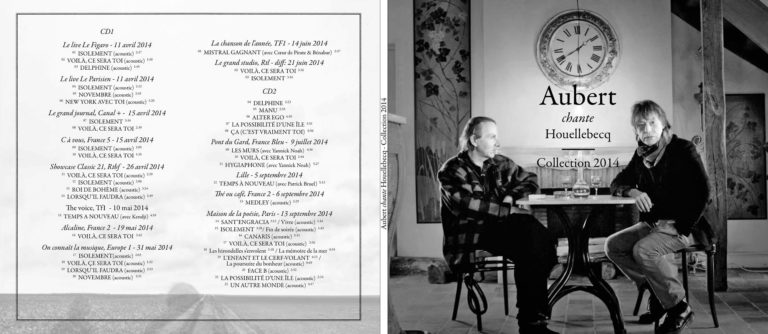 CD1
Le live Le Figaro - 11 avril 2014
ISOLEMENT (acoustic)
VOILÀ, CE SERA TOI (acoustic)
DELPHINE (acoustic)
Le live Le Parisien - 11 avril 2014
ISOLEMENT (acoustic)
NOVEMBRE (acoustic)
NEW YORK AVEC TOI (acoustic)
Le grand journal, Canal + - 15 avril 2014
ISOLEMENT
VOILÀ, CE SERA TOI
C à vous, France 5 - 15 avril 2014
ISOLEMENT
VOILÀ, CE SERA TOI
Showcase Classic 21, Rtbf - 26 avril 2014
VOILÀ, CE SERA TOI (acoustic)
ISOLEMENT (acoustic)
ROI DE BOHÈME (acoustic)
LORSQU'IL FAUDRA (acoustic)
The voice, Tf1 - 10 mai 2014
TEMPS À NOUVEAU (avec Kendji)
Alcaline, France 2 - 19 mai 2014
VOILÀ, CE SERA TOI
On connaît la musique, Europe 1 - 31 mai 2014
ISOLEMENT (acoustic)
VOILÀ, ÇE SERA TOI (acoustic)
LORSQU'IL FAUDRA (acoustic)
NOVEMBRE (acoustic)
La chanson de l'année, TF1 - 14 juin 2014
MISTRAL GAGNANT (avec Cœur de Pirate & Bénabar)
Le grand studio, Rtl - diff: 21 juin 2014
VOILÀ, CE SERA TOI
ISOLEMENT
CD2
DELPHINE
MANU
ALTER EGO
LA POSSIBILITÉ D'UNE ÎLE
ÇA (C'EST VRAIMENT TOI)
Pont du Gard, France Bleu - 9 juillet 2014
LES MURS (avec Yannick Noah)
VOILÀ, CE SERA TOI
HYGIAPHONE (avec Yannick Noah)
Lille - 5 septembre 2014
TEMPS À NOUVEAU (avec Patrick Bruel)
Thé ou café, France 2 - 6 septembre 2014
MEDLEY (acoustic)
Maison de la poésie, Paris - 15 septembre 2014
SANT'ENGRACIA / Vivre (acoustic)
ISOLEMENT / Fin de soirée (acoustic)
CANARIS (acoustic)
VOILÀ, CE SERA TOI (acoustic)
Les hirondelles s'envolent / La mémoire de la mer
L'ENFANT ET LE CERF-VOLANT /
La poursuite du bonheur (acoustic)
FACE B (acoustic)
LA POSSIBILITÉ D'UNE ÎLE (acoustic)
UN AUTRE MONDE (acoustic)
Aubert chante Houellebecq - Collection 2014
Aubert
chante
Houellebecq
Collection 2014